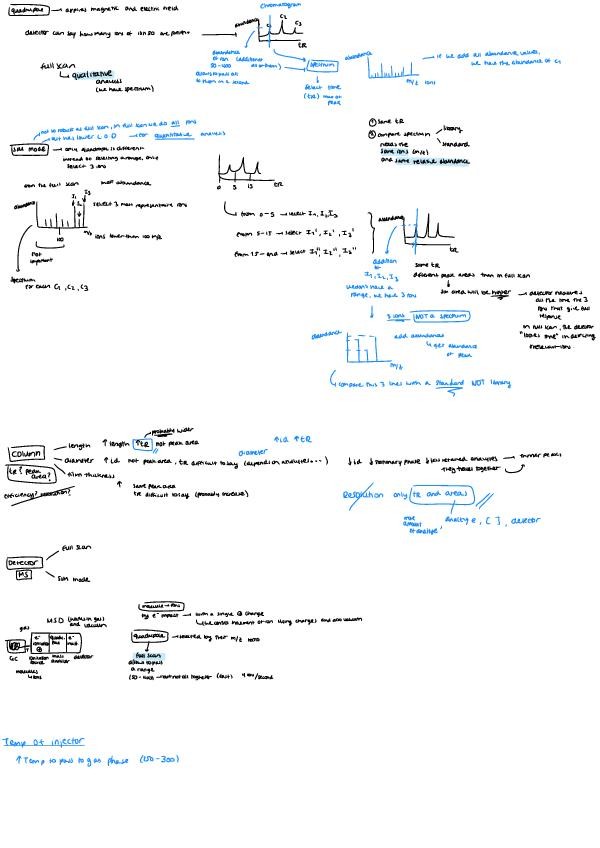 quadrupole → applies magnetic and electric field
detector can say how many ions of 150 are present
Chromatogram
abundance
C1
C2
C3
tR
full scan
qualitative
analysis
(we have spectrum)
abundance
of ion (addition
50-400 as of them)
allows to pass all
of them in 1 second
spectrum
select time
(tR) max of
peak
abundance
m/z ions
if we add all abundance values,
we have the abundance of C1
not so robust as full scan, in full scan we do all ions
but has lower L O D → for quantitative analysis
SIM MODE → only quadrupole is different
instead of selecting a range, only
select 3 ions
① same tR
② compare spectrum
library
standard
needs the
same ions (m/z)
and same relative abundance
from the full scan
most abundance
I1
I2
I3
abundance
select 3 most representative ions
100
m/z
ions lower than 100 m/z
not
important
spectrum
for each C1, C2, C3
0 5 15
tR
from 0-5 → select I1, I2, I3
from 5-15 → select I1', I2', I3'
from 15-end → select I1'', I2'', I3''
abundance
tR
addition
of
I1, I2, I3
we don't have a
range, we have 3 ions
same tR
different peak areas than in full scan
SIM area will be higher → detector measures
all the time the 3
ions that give full
response
in full scan, the detector
"loses time" in detecting
irrelevant ions
3 ions NOT a spectrum
abundance
m/z
add abundances
↳ get abundance
of peak
compare this 3 lines with a standard NOT library
COLUMN
tR? peak
area?
efficiency? resolution?
length ↑ length ↑ tR not peak area
probable wider
diameter ↑ id not peak area, tR difficult to say (depend on analytes...)
diameter
↑ id ↑ tR
film thickness
↑ same peak area
tR difficult to say (probably increase)
↓ id ↓ stationary phase ↓ less retained analytes → thinner peaks
they travel together
Resolution only tR and areas
amount
of analyte,
analyte, [ ], detector
Detector
MS
Full scan
SIM mode
gas
MSD (works in gas)
and vacuum
GC
ionization
source
mass
analyzer
detector
molecules
→ ions
molecule → ions
by e- impact → with a single ⊕ charge
quadrupole → selected by their m/z ratio
full scan
allows to pass
a range
Temp of injector
↑ Temp to pass to gas phase (250-300)